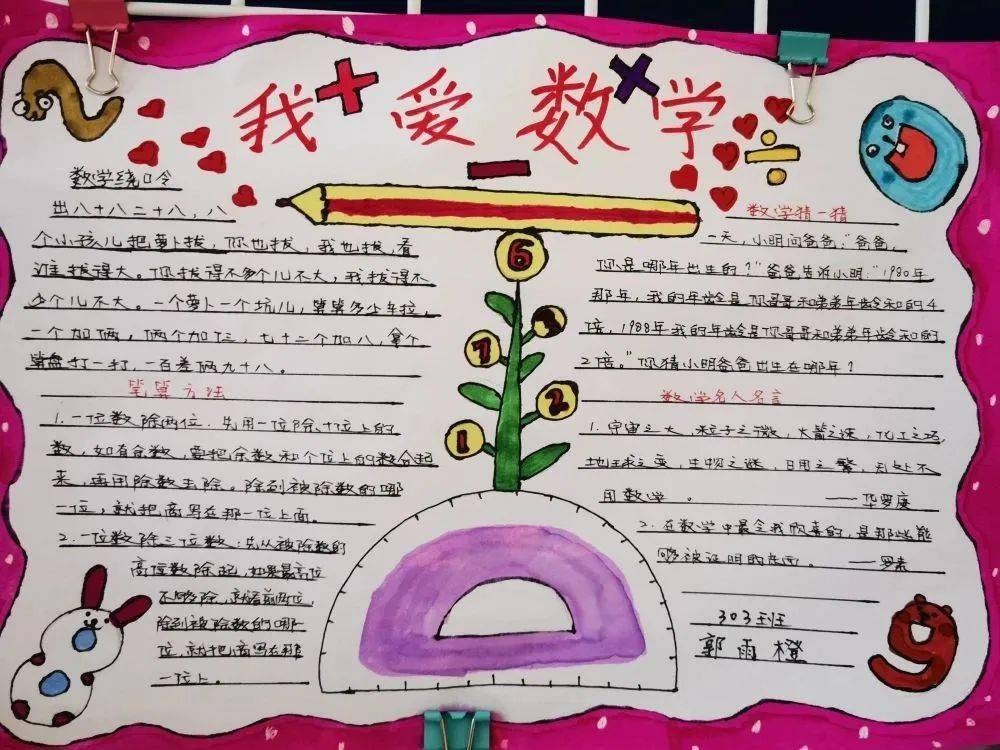 我爱数学
数学绕口令
出八十八二十八，八
个小孩儿把萝卜拔，你也拔，我也拔，看
谁拔得大。你拔得不多个儿不大，我拔得不
少个儿不大。一个萝卜一个坑儿，算算多少车拉，
一个加俩，俩个加仨，七十二个加八，拿个
算盘打一打，一百差俩九十八。
笔算方法
1.一位数除两位.先用一位除十位上的
数，如有余数，要把余数和个位上的数合起
来，再用除数去除。除到被除数的哪
一位，就把商写在那一位上面。
2.一位数除三位数：先从被除数的
高位数除起，如果最高位
不够除，就看前两位，
除到被除数的哪
位，就把商写在那
一位上。
6
7
2
1
数学猜一猜
一天，小明问爸爸，“爸爸，
你是哪年出生的？”爸爸告诉小明：“1980年
那年，我的年龄是你哥哥和弟弟年龄和的4
倍，1988年我的年龄是你哥哥和弟弟年龄和的
2倍。”你猜小明爸爸出生在哪年？
数学名人名言
1.宇宙之大，粒子之微，火箭之速，化工之巧，
地球之变，生物之谜，日用之繁，无处不
用数学。——华罗庚
2.在数学中最令我欣喜的，是那些能
够被证明的东西。——罗素
303班
郭雨橙
9